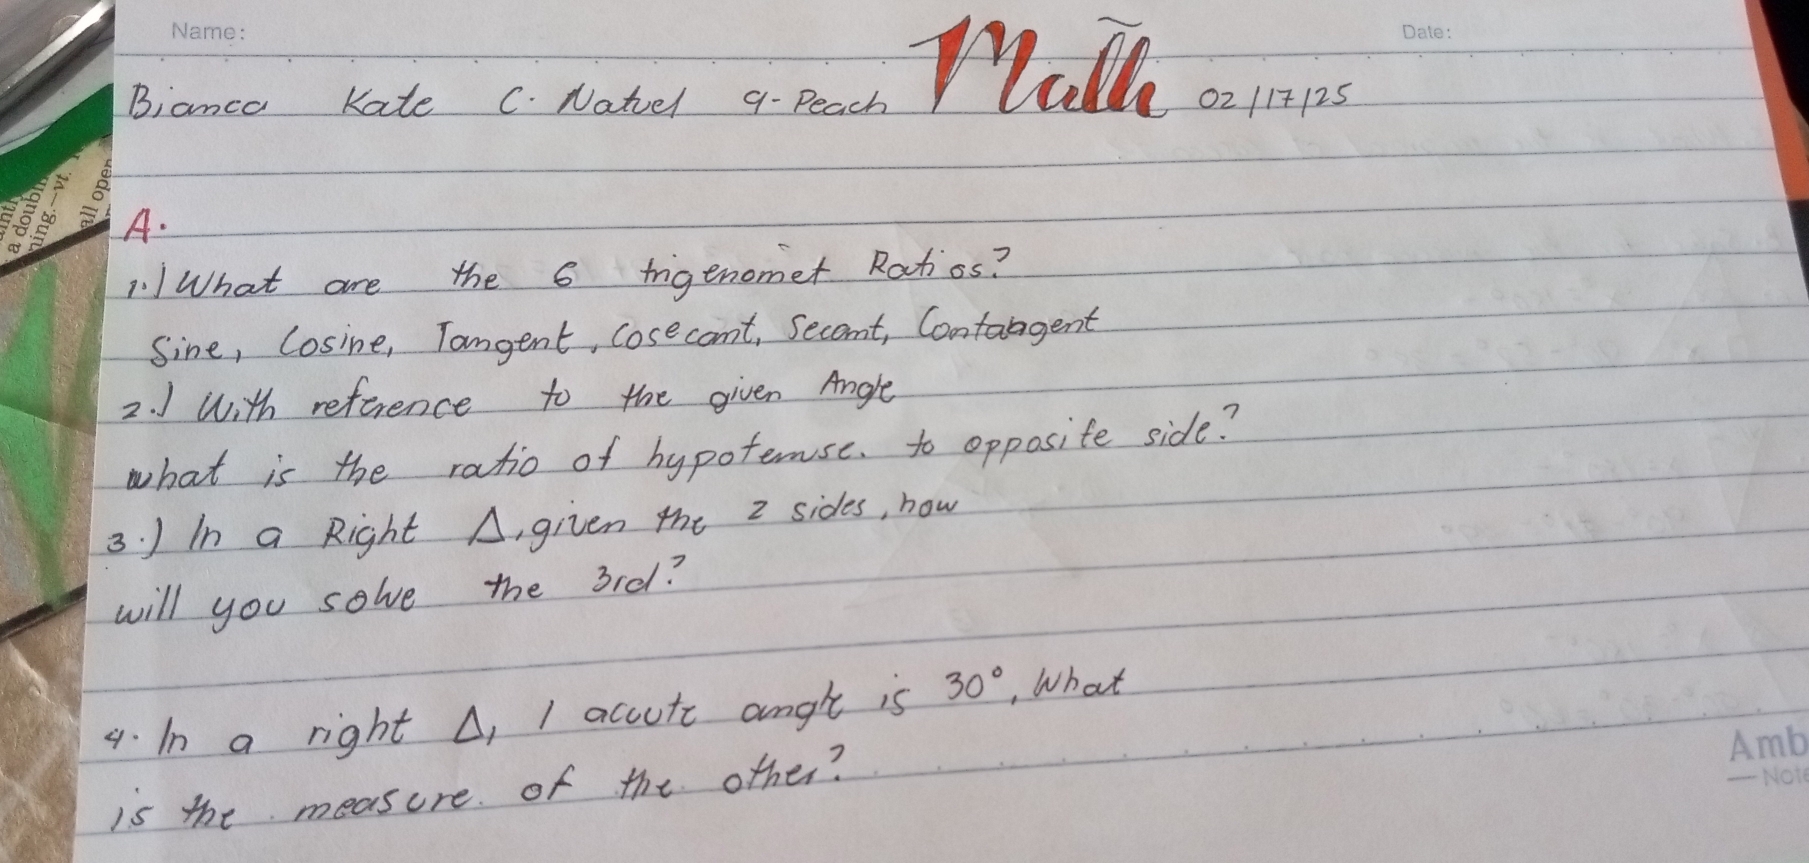 Name:
Date:
Math
Bianca Kate C. Natuel 9-Peach 02/17/25
A.
1.) What are the 6 trigenomet Ratios?
Sine, Cosine, Tangent, Cosecant, Secant, Contangent
2.) With reference to the given Angle
what is the ratio of hypotenuse. to opposite side?
3.) In a Right Δ, given the 2 sides, how
will you solve the 3rd?
4. In a right Δ, 1 acute angle is 30°, What
is the measure. of the other?
Amb
Note
a doubl
ning.—vt.
all open